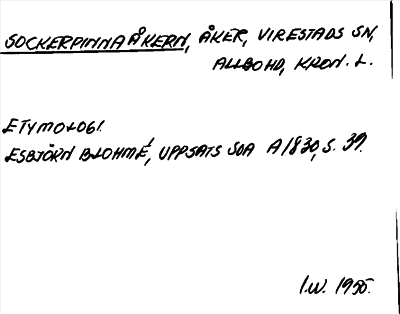 SOCKERPINNAÅKERN, ÅKER, VIRESTADS SN,
ALLBO HD, KRON. L.
ETYMOLOGI.
ESBJÖRN BLOHMÉ, UPPSATS SOA A1830, S. 39.
I.W. 1955.